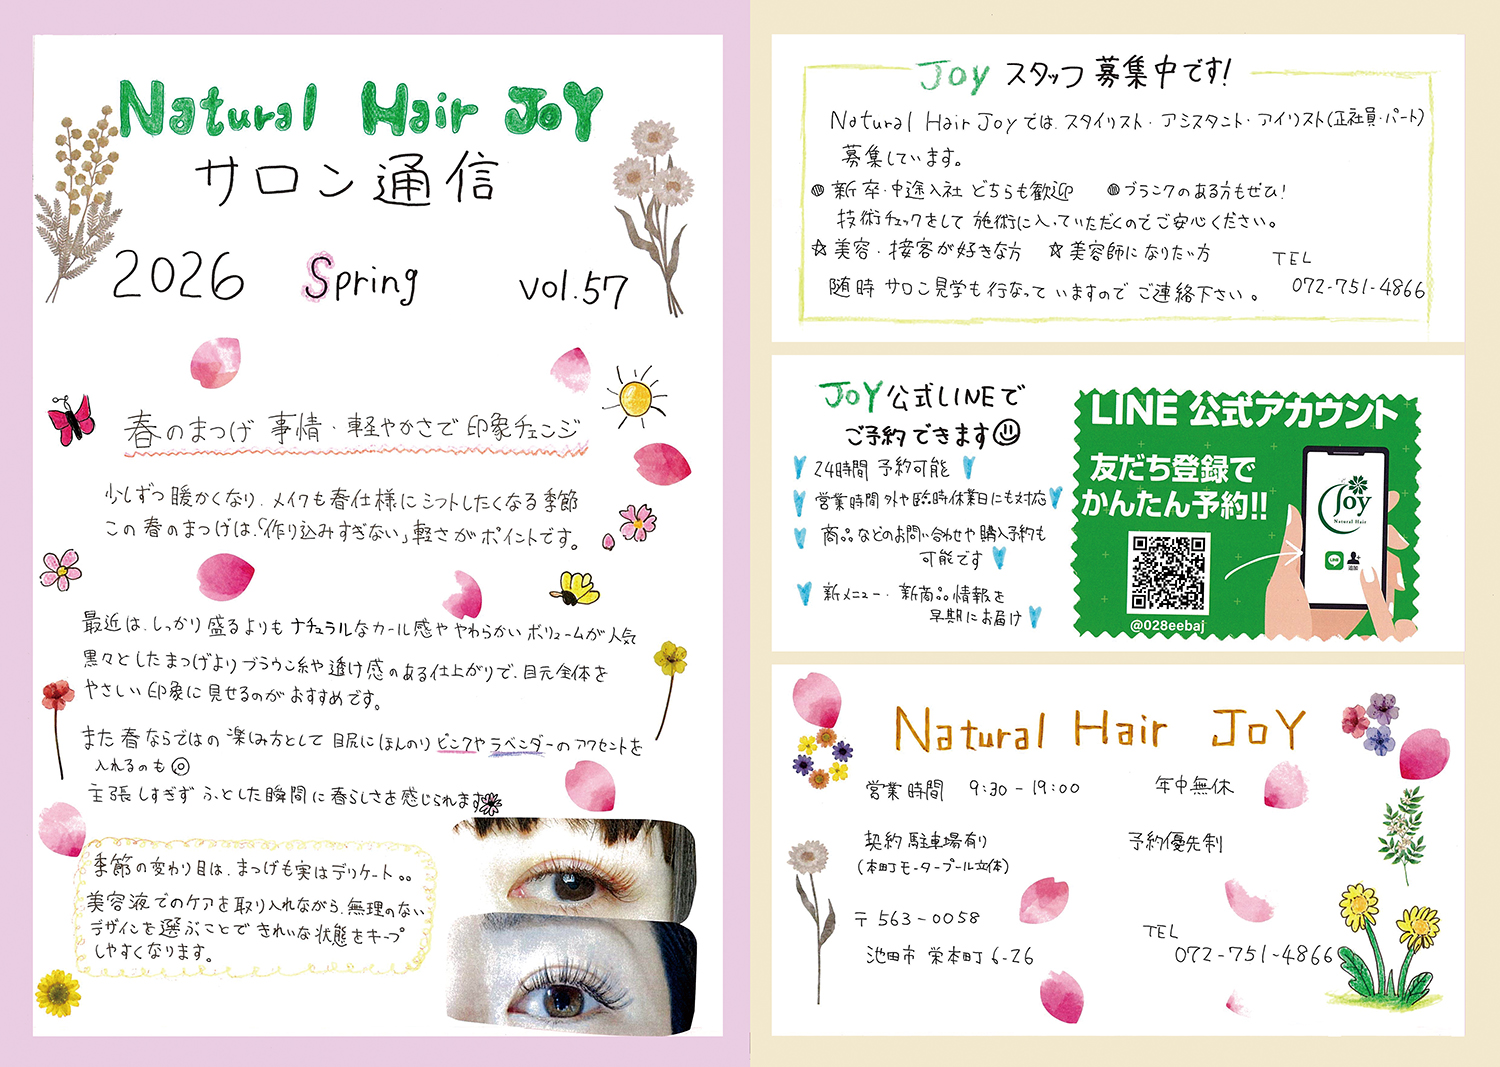 Natural Hair JoY
サロン通信
2026 Spring vol.57
春のまつげ事情・軽やかさで印象チェンジ
少しずつ暖かくなり、メイクも春仕様にシフトしたくなる季節
この春のまつげは、「作り込みすぎない」軽さがポイントです。
最近は、しっかり盛るよりもナチュラルなカール感ややわらかいボリュームが人気
黒々としたまつげよりブラウン系や透け感のある仕上がりで、目元全体を
やさしい印象に見せるのがおすすめです。
また春ならではの楽しみ方として目尻にほんのりピンクやラベンダーのアクセントを
入れるのも◎
主張しすぎずふとした瞬間に春らしさを感じられます
季節の変わり目は、まつげも実はデリケート。。
美容液でのケアを取り入れながら、無理のない
デザインを選ぶことできれいな状態をキープ
しやすくなります。
Joy スタッフ募集中です!
Natural Hair Joyでは、スタイリスト・アシスタント・アイリスト(正社員・パート)
募集しています。
新卒・中途入社どちらも歓迎 ブランクのある方もぜひ!
技術チェックをして施術に入っていただくのでご安心ください。
☆美容・接客が好きな方 ☆美容師になりたい方
TEL
随時サロン見学も行なっていますのでご連絡下さい。 072-751-4866
JOY公式LINEで
ご予約できます
24時間予約可能
営業時間外や臨時休業日にも対応
商品などのお問い合わせや購入予約も
可能です
新メニュー・新商品情報を
早期にお届け
LINE 公式アカウント
友だち登録で
かんたん予約!!
Joy
Natural Hair
LINE
追加
@028eebaj
Natural Hair JoY
営業時間 9:30-19:00 年中無休
契約駐車場有り 予約優先制
(本町モータープール立体)
〒563-0058
TEL
池田市栄本町6-26 072-751-4866